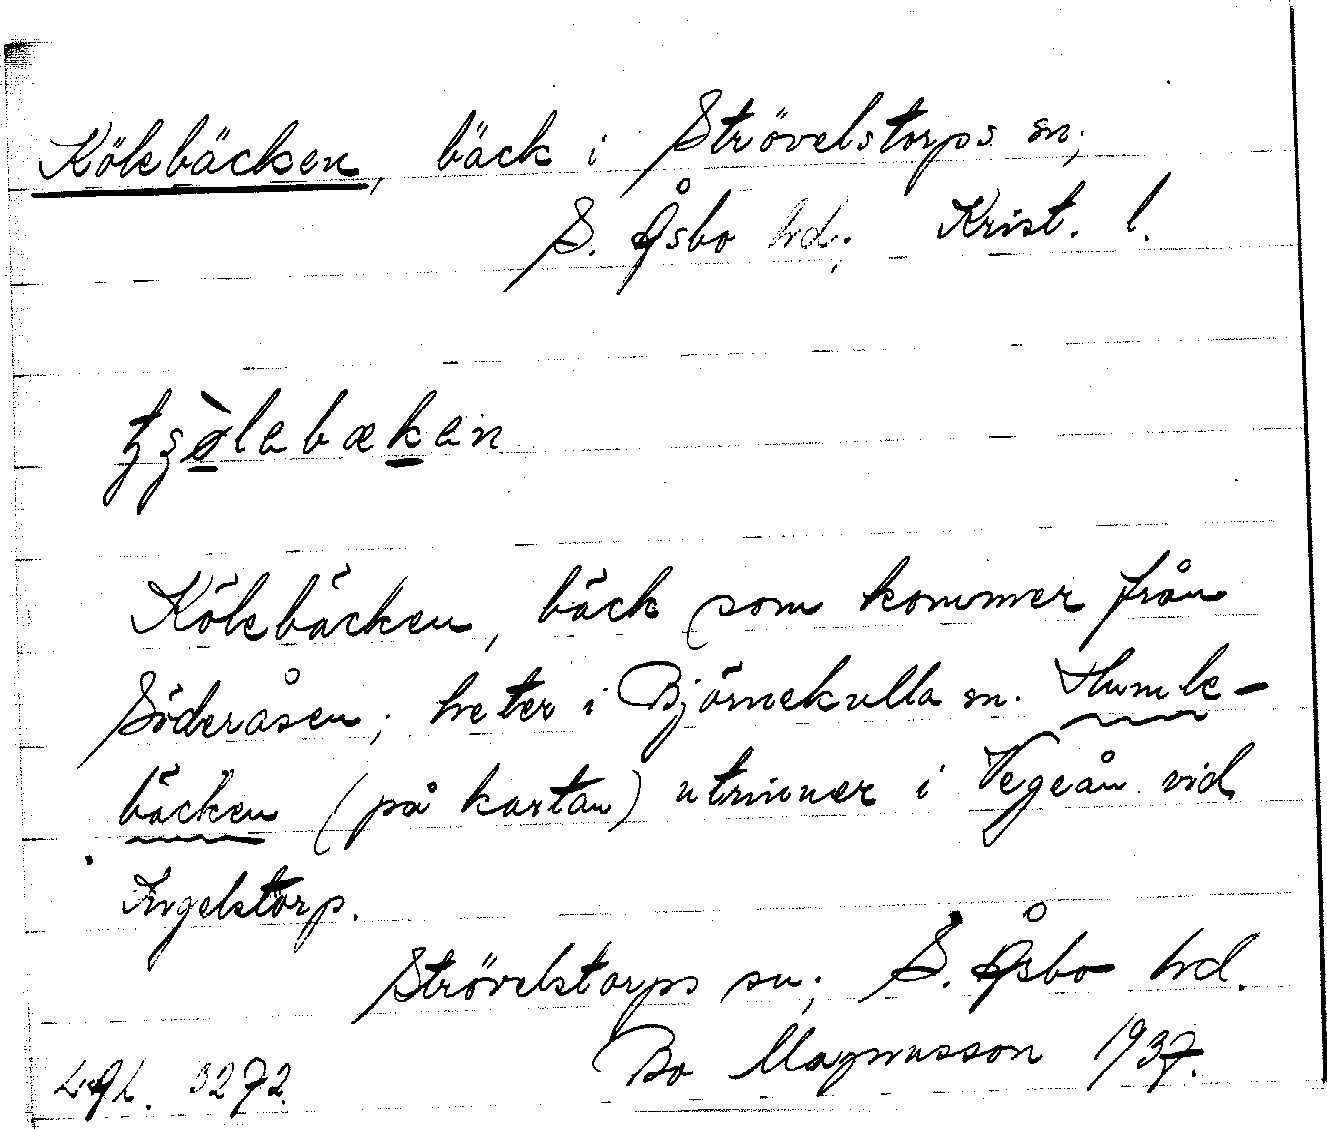 Kölebäcken, bäck i Strövelstorps sn;
S. Åsbo hd; Krist. l.
Kölebäcken, bäck som kommer från
Söderåsen; heter i Björnekulla sn. Humle-
bäcken (på kartan) utrinner i Vegeån vid
Ingelstorp.
Strövelstorps sn; S. Åsbo hd.
Bo Magnusson 1937.
3272.